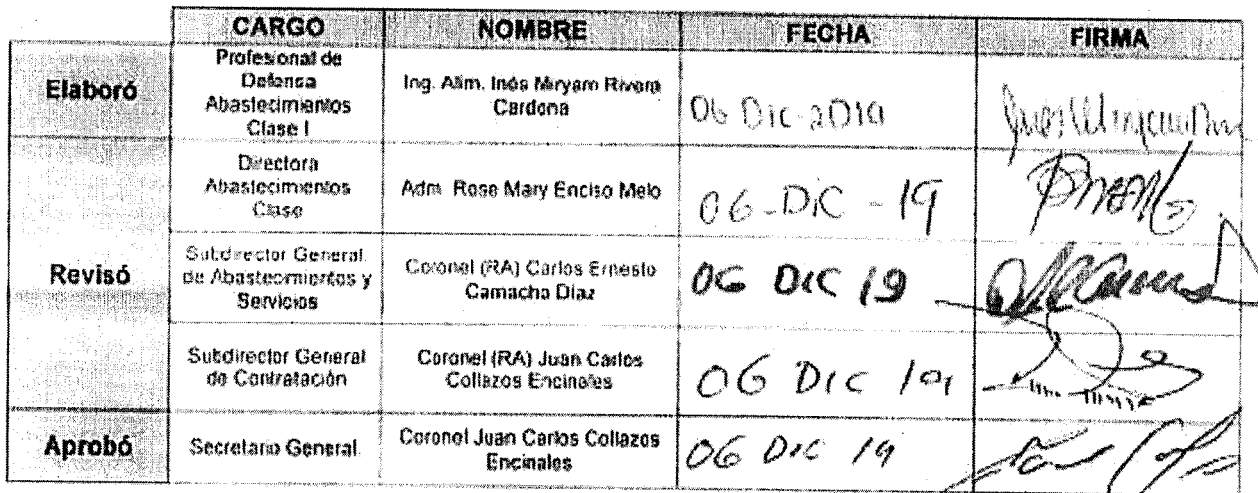 CARGO NOMBRE FECHA FIRMA
Elaboró
Profesional de
Defensa
Abastecimientos
Clase I
Ing. Alim. Inés Miryam Rivera
Cardona
06 Dic-2019
Directora
Abastecimientos
Clase
Adm. Rose Mary Enciso Melo
06-DIC-19
Revisó
Subdirector General
de Abastecimientos y
Servicios
Coronel (RA) Carlos Ernesto
Camacho Díaz
06 DIC 19
Subdirector General
de Contratación
Coronel (RA) Juan Carlos
Collazos Encinales
06 DIC 19
Aprobó
Secretario General
Coronel Juan Carlos Collazos
Encinales
06 DIC 19